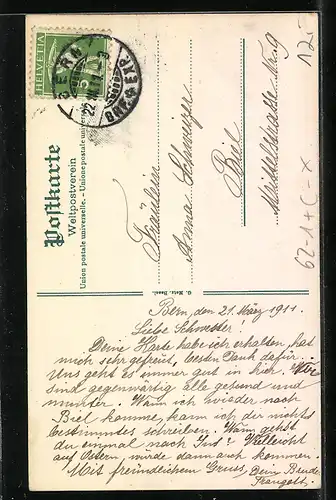 HELVETIA
5
BERN
BRF. EXP.
22
Postkarte
Weltpostverein
Union postale universelle. - Unione postale universale
Fräulein
Anna Schweizer
Biel
No. 9
G. Metz, Basel.
125
62-1+C-X
Bern, den 21. März 1911.
Liebe Schwester!
Deine Karte habe ich erhalten, hat
mich sehr gefreut, besten Dank dafür.
Uns geht es immer gut in hier. Wir
sind gegenwärtig alle gesund und
munter. Wann ich wieder nach
Biel komme, kann ich dir nichts
bestimmtes schreiben. Wann gehst
du einmal nach Ins? Vielleicht
auf Ostern, würde dann auch kommen.
Mit freundlichem Gruss, Dein Bruder